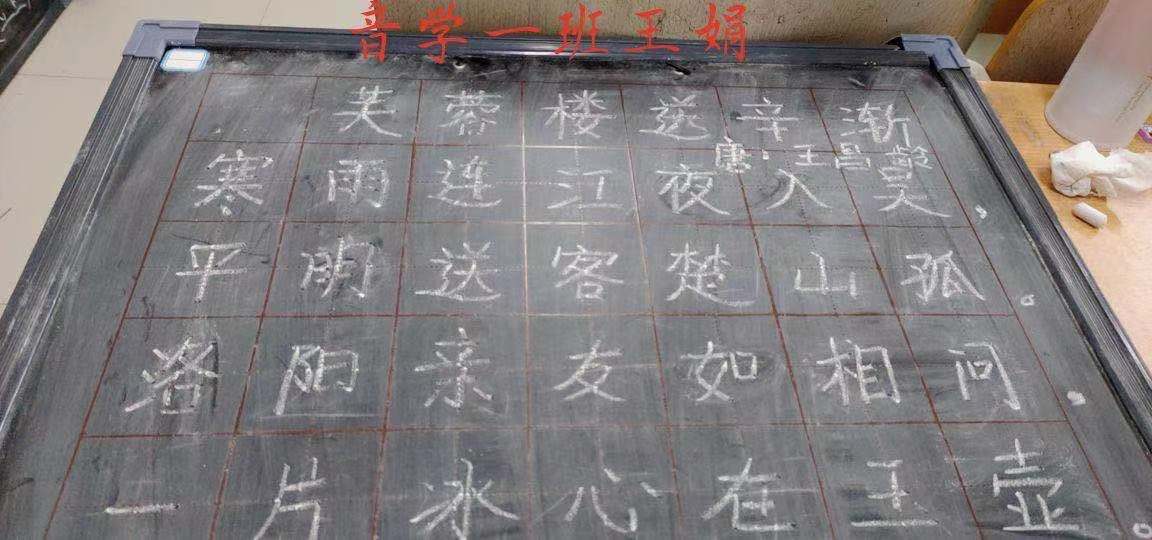 音学一班王娟
芙蓉楼送辛渐
唐·王昌龄
寒雨连江夜入吴，
平明送客楚山孤。
洛阳亲友如相问，
一片冰心在玉壶。